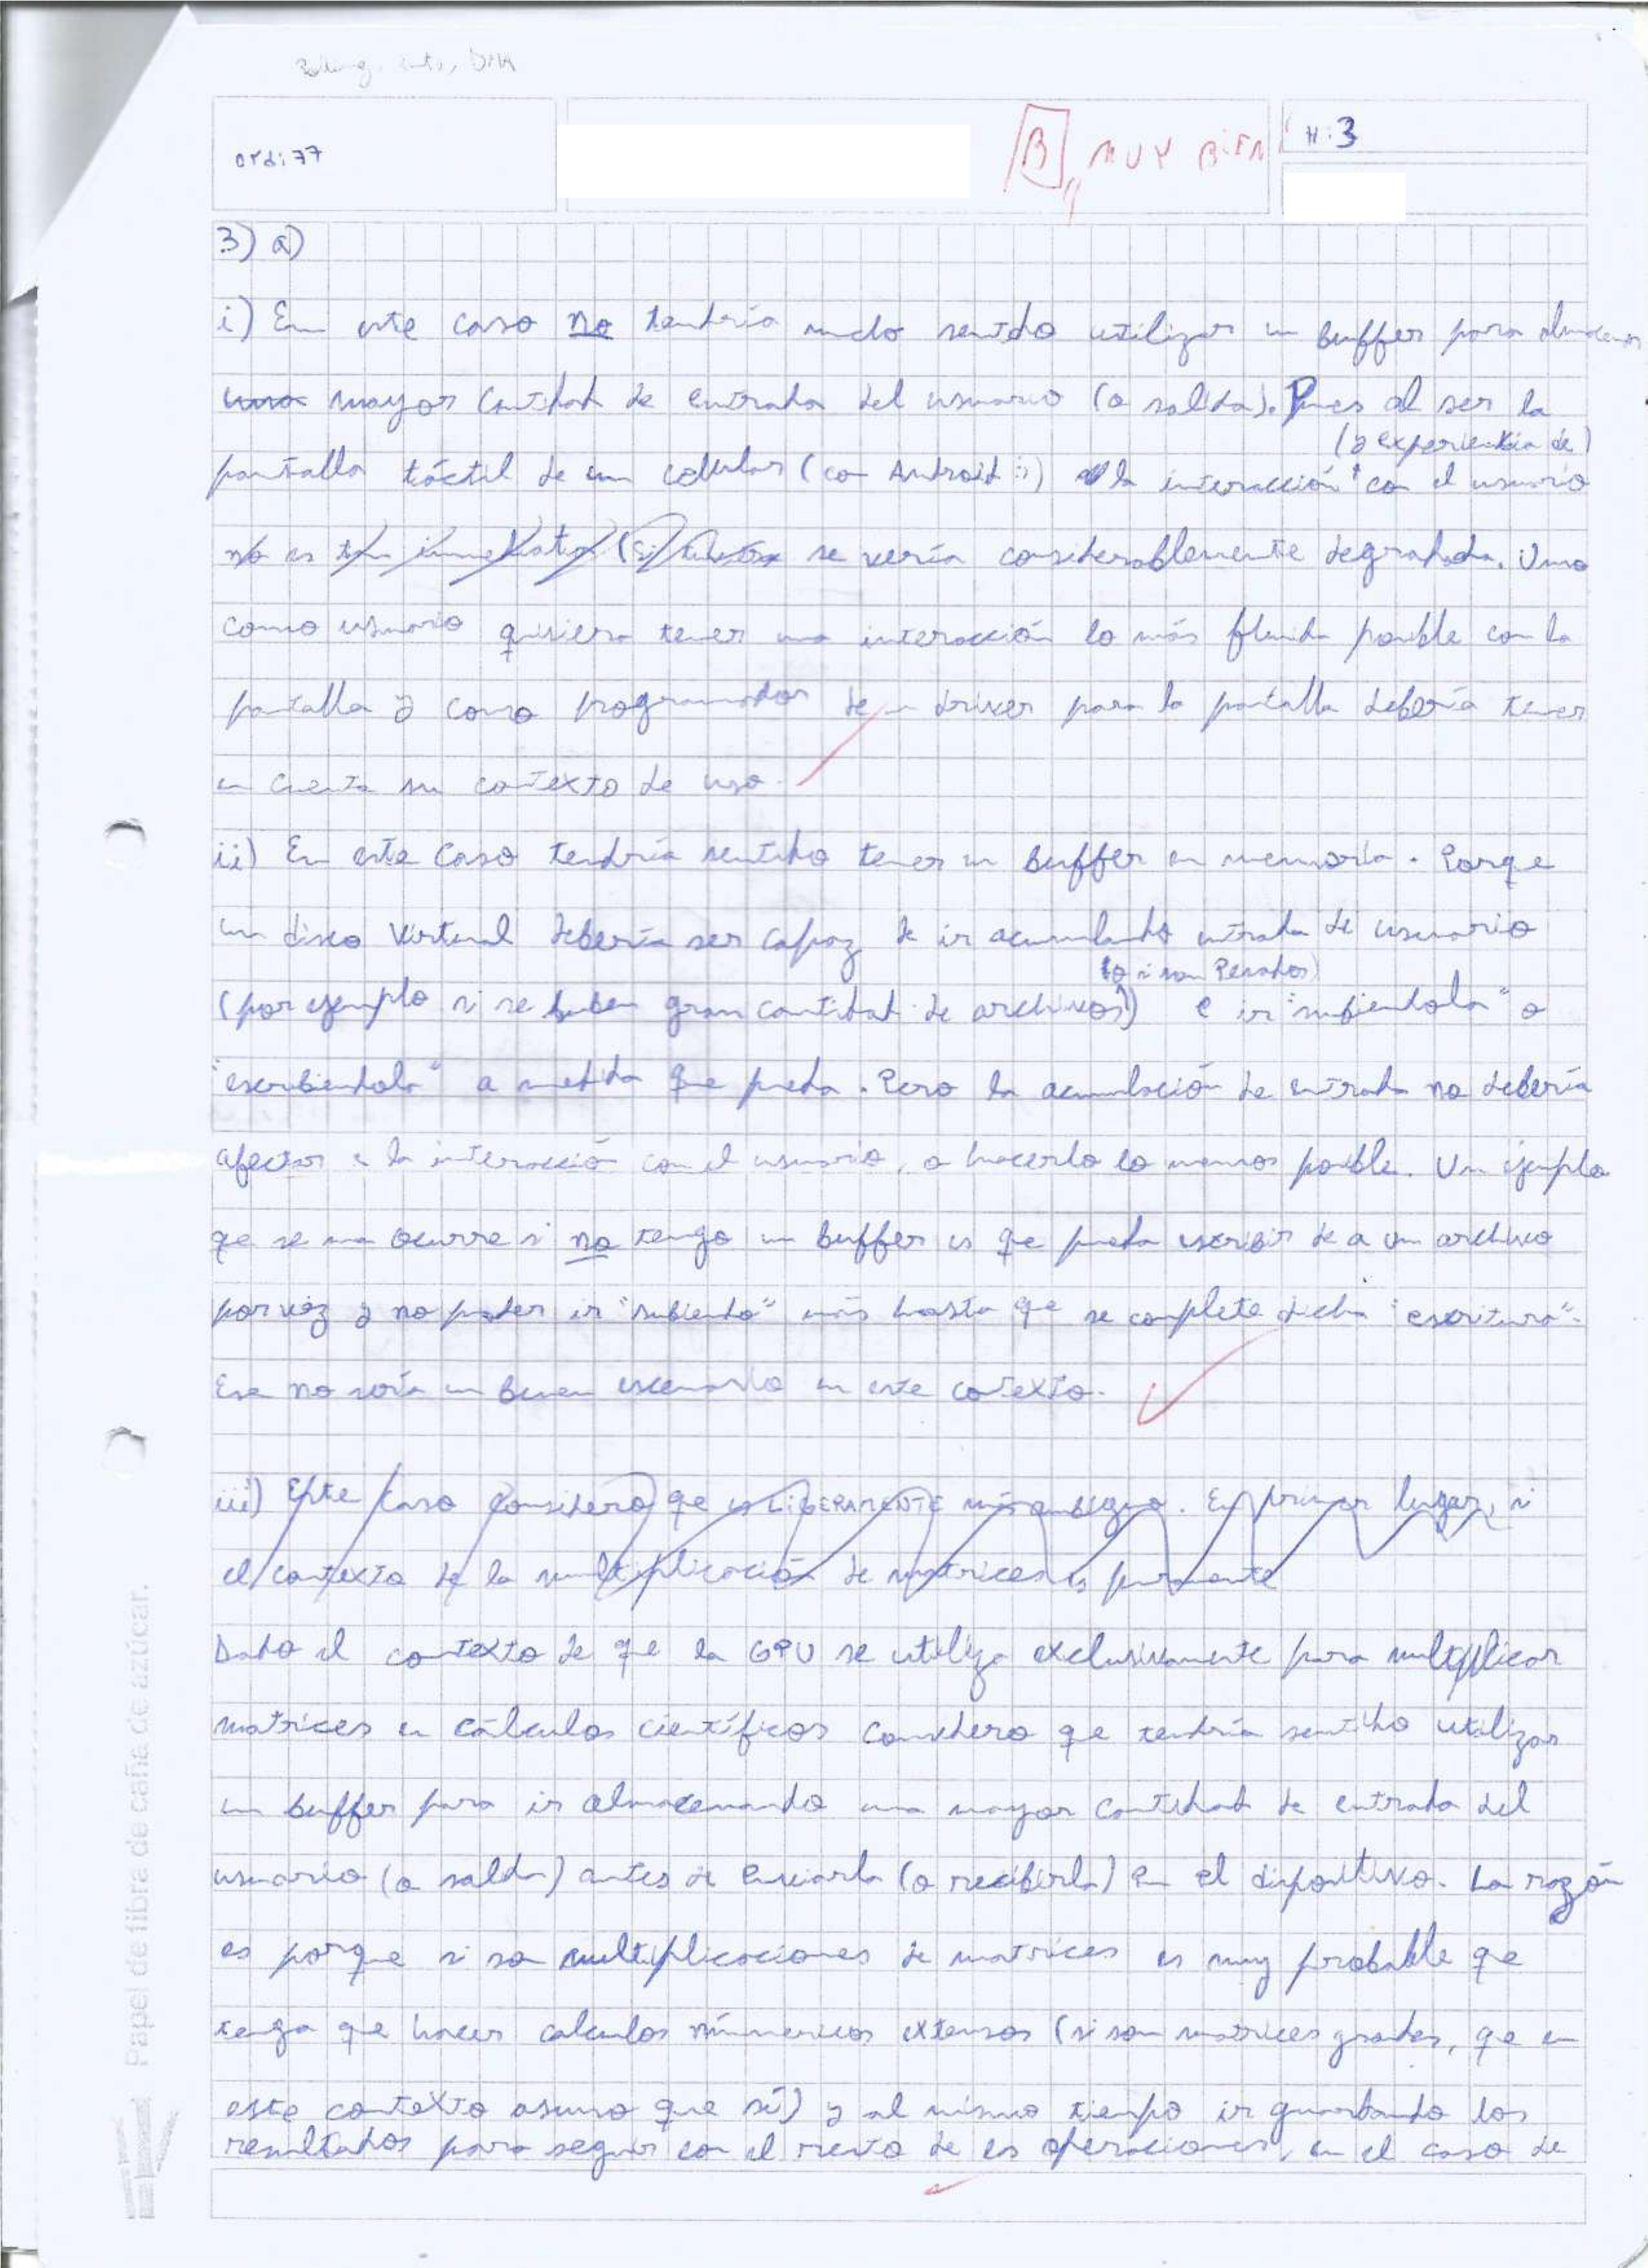 Polling, ints, DMA
ordi 77
B MUY BIEN
H: 3
3) a)
i) En este caso no tendría mucho sentido utilizar un buffer para almacenar
una mayor cantidad de entrada del usuario (o salida). Pues al ser la
(y experiencia de)
pantalla táctil de un celular (con Android :)) la interacción con el usuario
no es tan inmediata (si tuviera se vería considerablemente degradada. Uno
como usuario quisiera tener una interacción lo más fluida posible con la
pantalla y como programador de un driver para la pantalla debería tener
en cuenta su contexto de uso.
ii) En este caso tendría sentido tener un buffer en memoria. Porque
un disco virtual debería ser capaz de ir acumulando entrada de usuario
(o si son pesados)
(por ejemplo si se suben gran cantidad de archivos) e ir "subiendola" o
"escribiendola" a medida que pueda. Pero la acumulación de entrada no debería
afectar a la interacción con el usuario, o hacerlo lo menos posible. Un ejemplo
que se me ocurre si no tengo un buffer es que pueda escribir de a un archivo
por vez y no poder ir "subiendo" más hasta que se complete dicha "escritura".
Ese no sería un buen escenario en este contexto.
iii) Este caso considero que es LIGERAMENTE más ambiguo. En primer lugar, si
el contexto de la multiplicación de matrices es puramente
Dado el contexto de que la GPU se utiliza exclusivamente para multiplicar
matrices en cálculos científicos considero que tendría sentido utilizar
un buffer para ir almacenando una mayor cantidad de entrada del
usuario (o salida) antes de enviarla (o recibirla) en el dispositivo. La razón
es porque si son multiplicaciones de matrices es muy probable que
tenga que hacer calculos númericos extensos (si son matrices grandes, que en
este contexto asumo que sí) y al mismo tiempo ir guardando los
resultados para seguir con el resto de las operaciones, en el caso de
Papel de fibra de caña de azúcar.